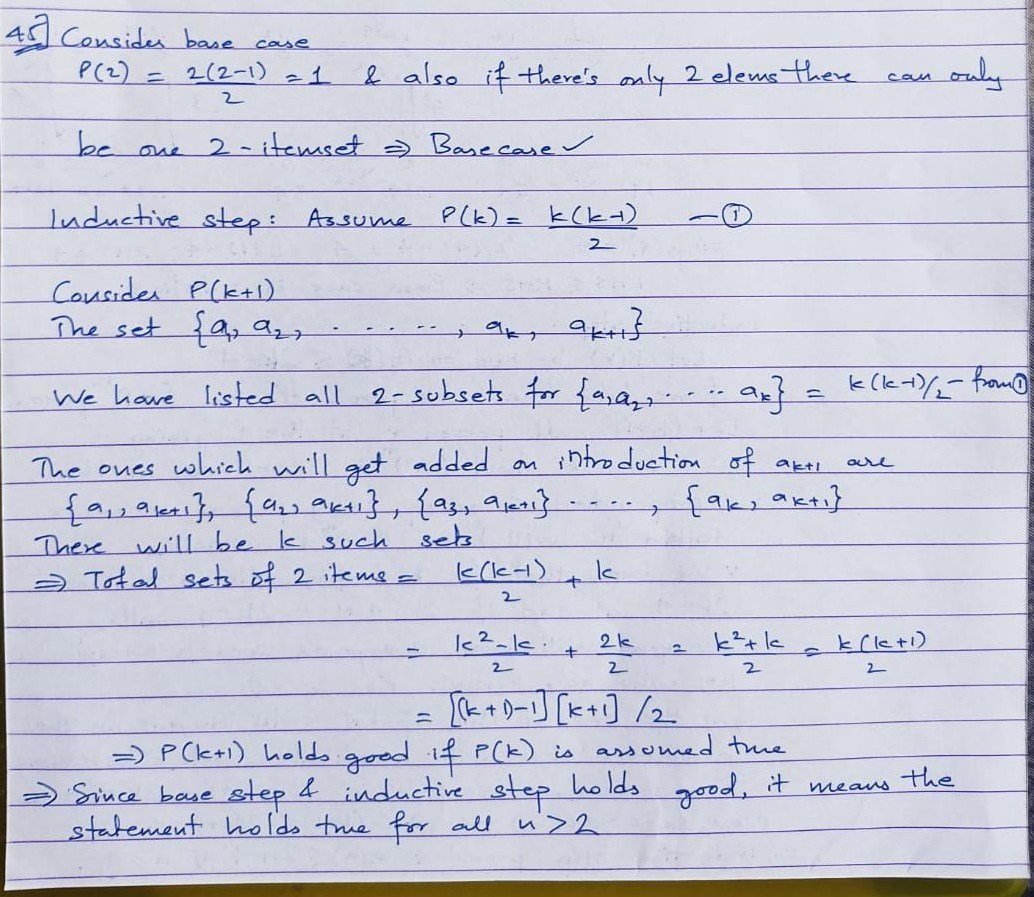 45] Consider base case
P(2) = 2(2-1)/2 = 1 & also if there's only 2 elems there can only
be one 2-itemset ⇒ Base case ✓
Inductive step: Assume P(k) = k(k-1)/2 — ①
Consider P(k+1)
The set {a₁, a₂, ......., aₖ, aₖ₊₁}
We have listed all 2-subsets for {a₁a₂, ..... aₖ} = k(k-1)/2 - from ①
The ones which will get added on introduction of aₖ₊₁ are
{a₁, aₖ₊₁}, {a₂, aₖ₊₁}, {a₃, aₖ₊₁} ....., {aₖ, aₖ₊₁}
There will be k such sets
⇒ Total sets of 2 items = k(k-1)/2 + k
= k²-k/2 + 2k/2 = k²+k/2 = k(k+1)/2
= [(k+1)-1][k+1] /2
⇒ P(k+1) holds good if P(k) is assumed true
⇒ Since base step & inductive step holds good, it means the
statement holds true for all n>2